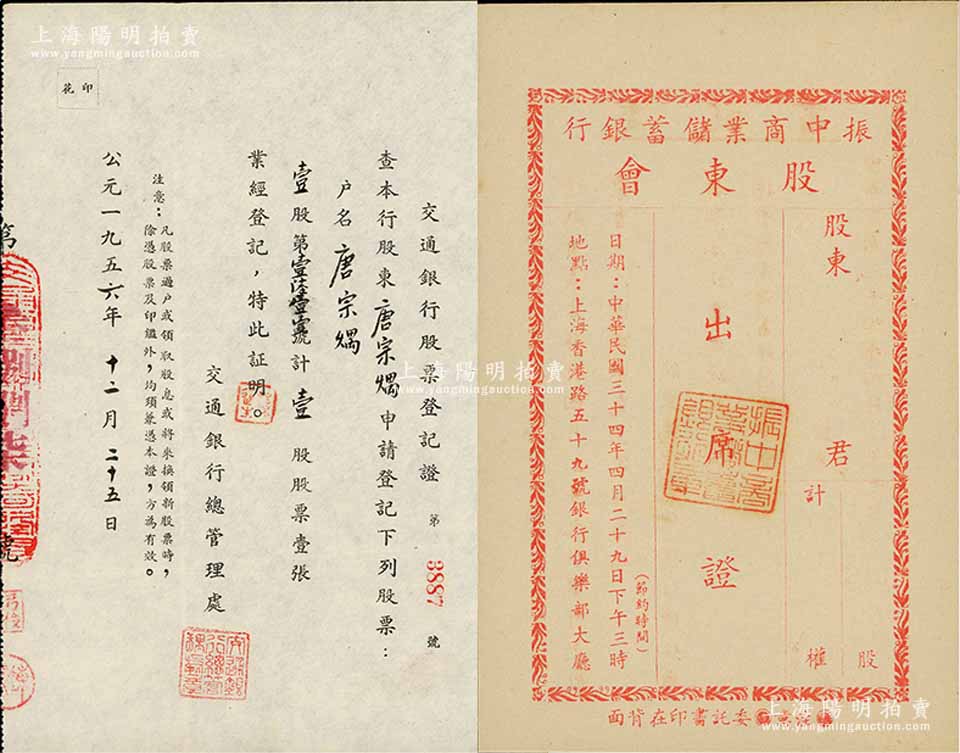 上海陽明拍賣
www.yangmingauction.com
印花
交通銀行股票登記證 第 3887 號
查本行股東唐宗㷒申請登記下列股票：
戶名 唐宗㷒
壹股第壹陸壹壹號計 壹 股股票壹張
業經登記，特此証明。
交通銀行總管理處
注意：凡股票過戶或領取股息或將來換領新股票時，
除憑股票及印鑑外，均須兼憑本證，方為有效。
公元一九五六年 十二月 二十五日
第
號
上海陽明拍賣
www.yangmingauction.com
振中商業儲蓄銀行
股東會
股東 君
計 股
權
出席證
日期：中華民國三十四年四月二十九日下午三時
（節約時間）
地點：上海香港路五十九號銀行俱樂部大廳
委託書印在背面
上海陽明拍賣
www.yangmingauction.com
上海陽明拍賣
www.yangmingauction.com